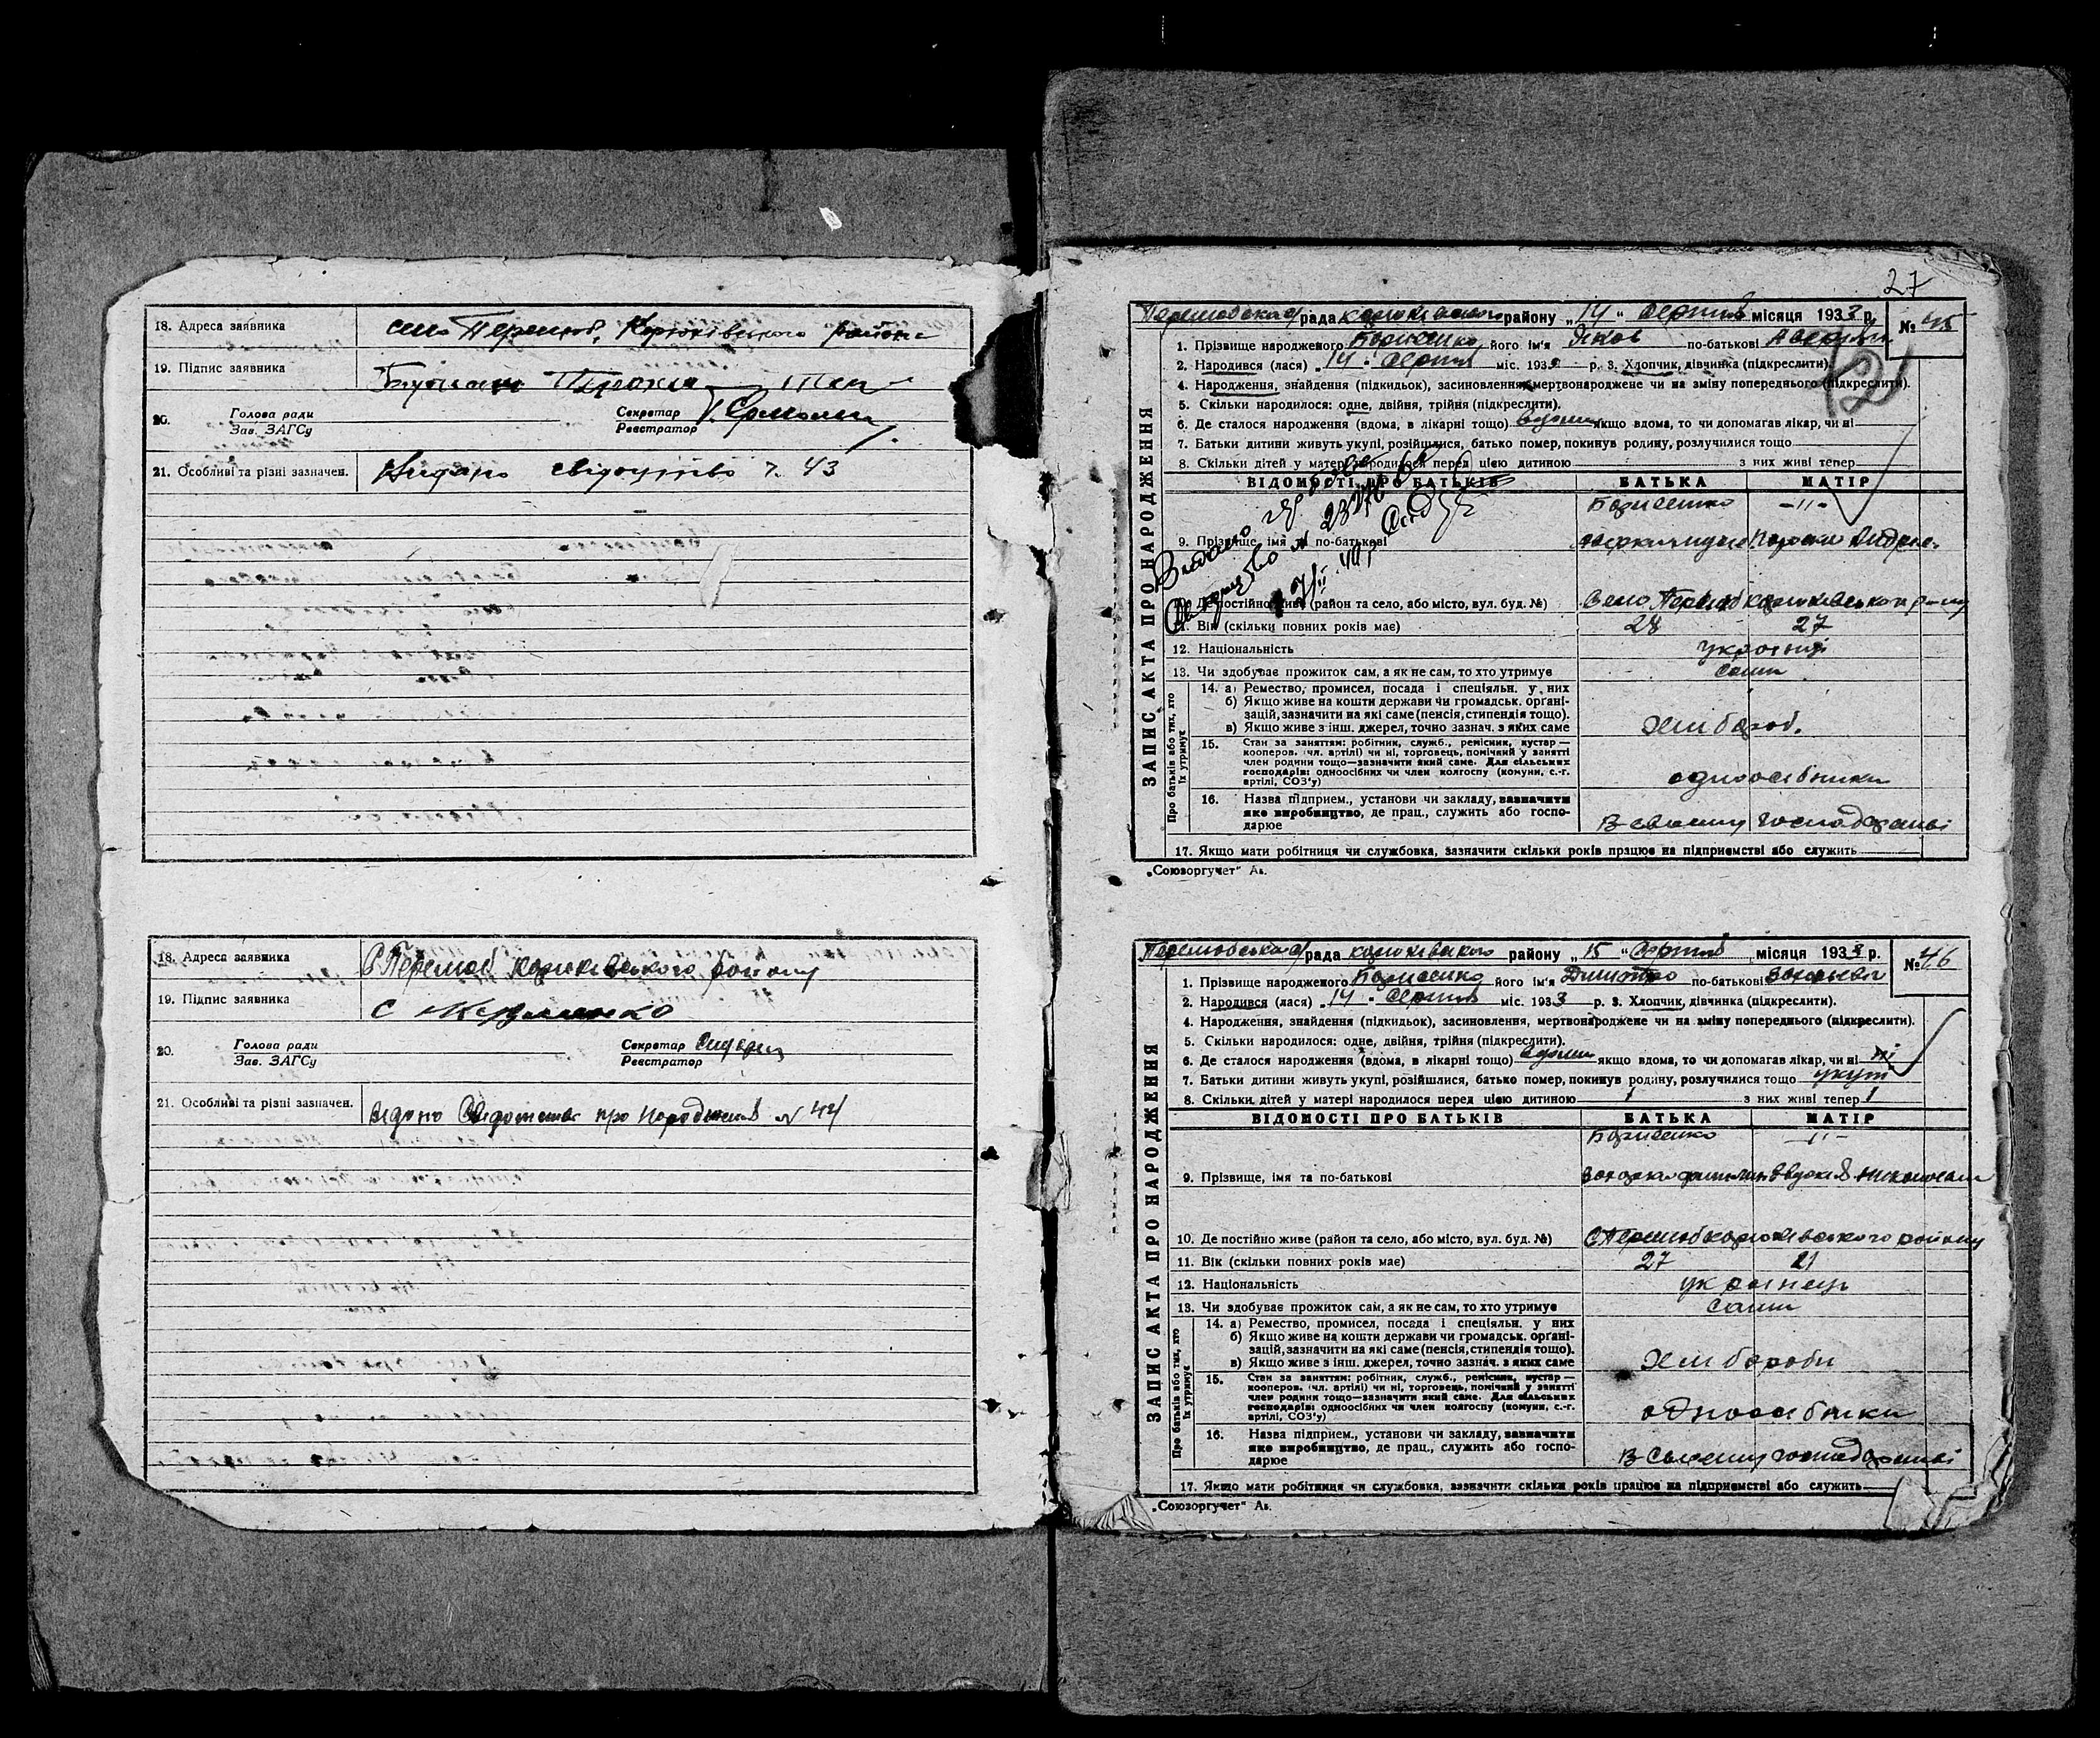 18. Адреса заявника село Перелюб, Корюківського району
19. Підпис заявника
20. Голова ради
Зав. ЗАГСу
Секретар
Реєстратор
21. Особливі та різні зазначен. Видано свідоцтво 43
18. Адреса заявника с Перелюб корюківського району
19. Підпис заявника
20. Голова ради
Зав. ЗАГСу
Секретар
Реєстратор
21. Особливі та різні зазначен. видано про народження № 44
27
ЗАПИС АКТА ПРО НАРОДЖЕННЯ
Перелюбська рада корюківського району „14“ серпня місяця 1933 р. № 45
1. Прізвище народженого Борисенко його ім'я Яков по-батькові
2. Народився (лася) 14 серпня міс. 193 р. 3. Хлопчик, дівчинка (підкреслити).
4. Народження, знайдення (підкидьок), засиновлення, мертвонароджене чи на зміну попереднього (підкреслити).
5. Скільки народилося: одне, двійня, трійня (підкреслити).
6. Де сталося народження (вдома, в лікарні тощо) вдома якщо вдома, то чи допомагав лікар, чи ні
7. Батьки дитини живуть укупі, розійшлися, батько помер, покинув родину, розлучилися тощо
8. Скільки дітей у матері народилося перед цією дитиною з них живі тепер
ВІДОМОСТІ ПРО БАТЬКІВ БАТЬКА МАТІР
Борисенко -"-
9. Прізвище, імя та по-батькові
Видано
Свидоцтво №
10. Де постійно живе (район та село, або місто, вул. буд. №) село Перелюб корюківського р-ну
11. Вік (скільки повних років має) 28 27
12. Національність українці
13. Чи здобуває прожиток сам, а як не сам, то хто утримує сами
Про батьків або тих, хто їх утримує
14. а) Ремество, промисел, посада і спеціяльн. у них
б) Якщо живе на кошти держави чи громадськ. органі-
зацій, зазначити на які саме (пенсія, стипендія тощо).
в) Якщо живе з інш. джерел, точно зазнач. з яких саме хлібороб.
15. Стан за заняттям: робітник, служб., ремісник, кустар—
кооперов. (чл. артілі) чи ні, торговець, помічний у занятті
член родини тощо—зазначити який саме. Для сільських
господарів: одноосібних чи член колгоспу (комуни, с.-г.
артілі, СОЗ'у) одноосібники
16. Назва підприєм., установи чи закладу, зазначити
яке виробництво, де прац., служить або госпо-
дарює В своєму господарстві
17. Якщо мати робітниця чи службовка, зазначити скільки років працює на підприємстві або служить
„Союзоргучет“ Ав.
ЗАПИС АКТА ПРО НАРОДЖЕННЯ
Перелюбська рада корюківського району „15“ Серпня місяця 1933 р. № 46
1. Прізвище народженого Борисенко його ім'я Дмитро по-батькові
2. Народився (лася) 14 Серпня міс. 1933 р. 3. Хлопчик, дівчинка (підкреслити).
4. Народження, знайдення (підкидьок), засиновлення, мертвонароджене чи на зміну попереднього (підкреслити).
5. Скільки народилося: одне, двійня, трійня (підкреслити).
6. Де сталося народження (вдома, в лікарні тощо) вдома якщо вдома, то чи допомагав лікар, чи ні ні
7. Батьки дитини живуть укупі, розійшлися, батько помер, покинув родину, розлучилися тощо укупі
8. Скільки дітей у матері народилося перед цією дитиною 1 з них живі тепер 1
ВІДОМОСТІ ПРО БАТЬКІВ БАТЬКА МАТІР
Борисенко -"-
9. Прізвище, імя та по-батькові
10. Де постійно живе (район та село, або місто, вул. буд. №) с Перелюб корюківського району
11. Вік (скільки повних років має) 27 21
12. Національність українець
13. Чи здобуває прожиток сам, а як не сам, то хто утримує сами
Про батьків або тих, хто їх утримує
14. а) Ремество, промисел, посада і спеціяльн. у них
б) Якщо живе на кошти держави чи громадськ. органі-
зацій, зазначити на які саме (пенсія, стипендія тощо).
в) Якщо живе з інш. джерел, точно зазнач. з яких саме хлібороби
15. Стан за заняттям: робітник, служб., ремісник, кустар—
кооперов. (чл. артілі) чи ні, торговець, помічний у занятті
член родини тощо—зазначити який саме. Для сільських
господарів: одноосібних чи член колгоспу (комуни, с.-г.
артілі, СОЗ'у) одноосібники
16. Назва підприєм., установи чи закладу, зазначити
яке виробництво, де прац., служить або госпо-
дарює В своєму господарстві
17. Якщо мати робітниця чи службовка, зазначити скільки років працює на підприємстві або служить
„Союзоргучет“ Ав.